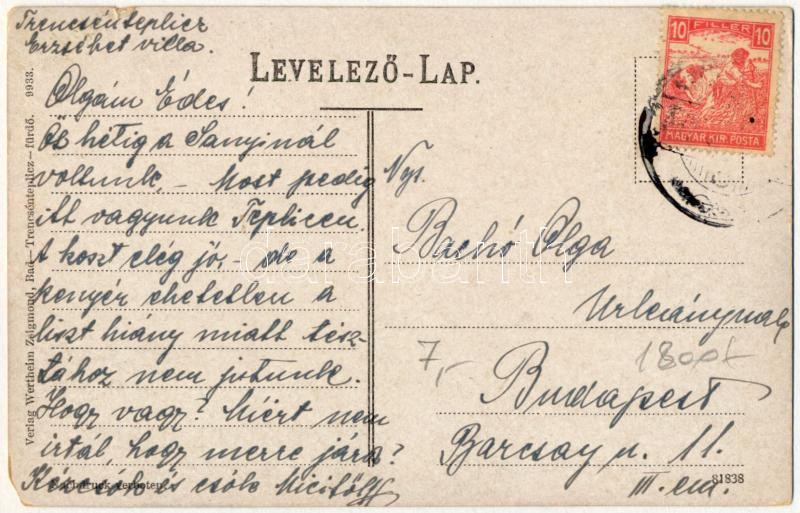 Trencsénteplicz
Erzsébet villa.
LEVELEZŐ-LAP.
10 FILLÉR 10
MAGYAR KIR. POSTA
Olgám Édes!
Öt hétig a Sanyinál
voltunk, – Most pedig
itt vagyunk Teplicen.
A koszt elég jó, – de a
kenyér ehetetlen a
liszt hiány miatt tész-
tához nem jutunk.
Hogy vagy? Miért nem
irtál, hogy merre jársz?
és csók Micitől
Ngs.
Bachó Olga
Urleánynak
7,-
1800f
Budapest
Barcsay u. 11.
III. em.
81838
Nachdruck verboten.
Verlag Wertheim Zsigmond, Bad–Trencsénteplicz–fürdő. 9933.
darabanth